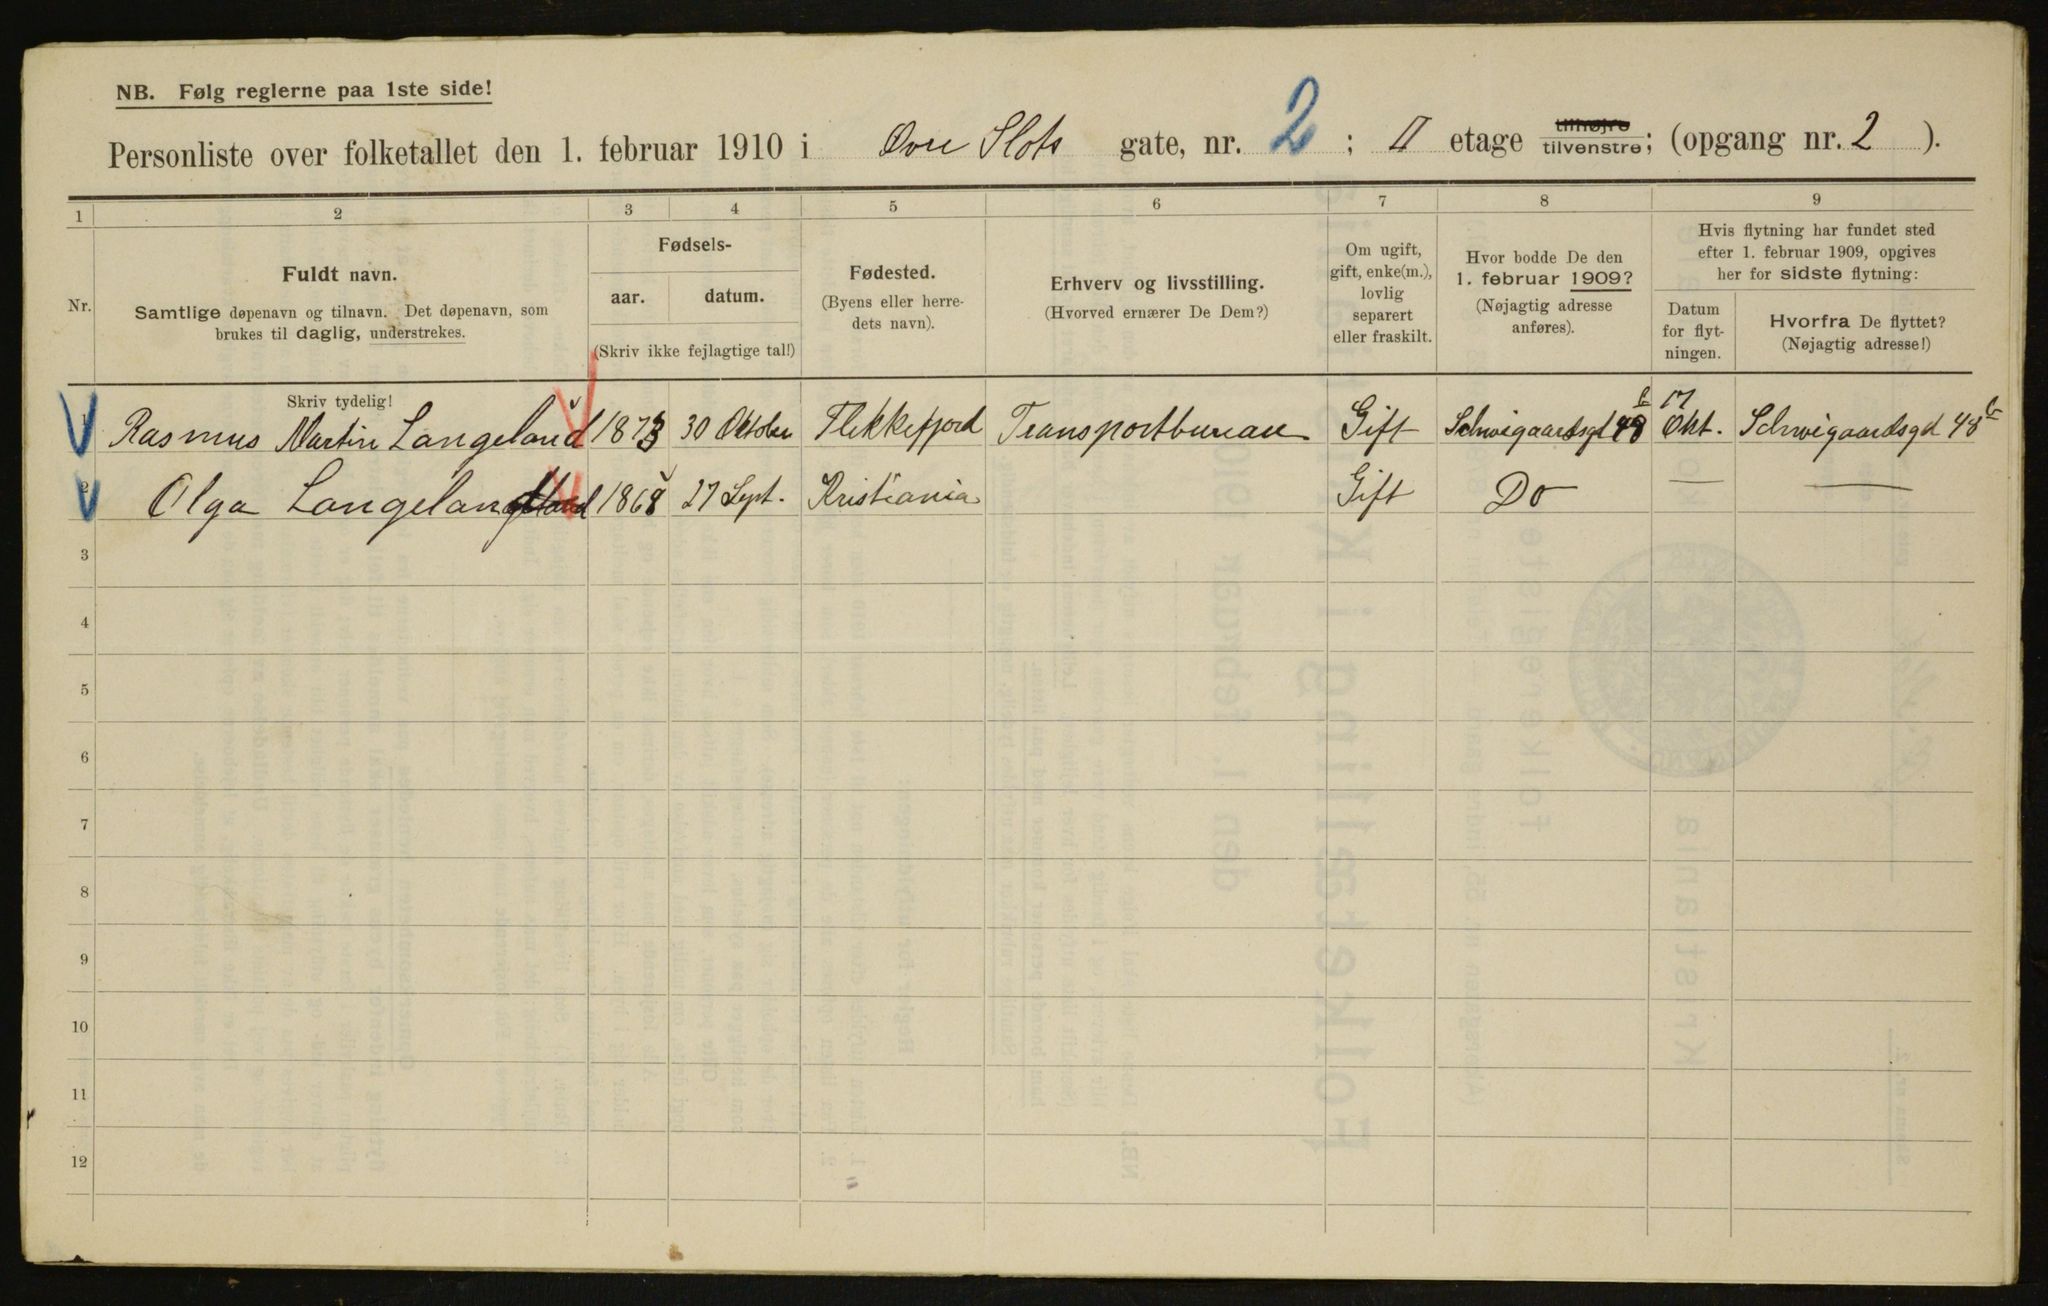 NB. Følg reglerne paa 1ste side!
Personliste over folketallet den 1. februar 1910 i Øvre Slots gate, nr. 2 ; II etage tilhøjre tilvenstre; (opgang nr. 2 ).
1 2 3 4 5 6 7 8 9
Nr.
Fuldt navn.
Samtlige døpenavn og tilnavn. Det døpenavn, som
brukes til daglig, understrekes.
Fødsels-
aar. datum.
(Skriv ikke fejlagtige tal!)
Fødested.
(Byens eller herre-
dets navn).
Erhverv og livsstilling.
(Hvorved ernærer De Dem?)
Om ugift,
gift, enke(m.),
lovlig
separert
eller fraskilt.
Hvor bodde De den
1. februar 1909?
(Nøjagtig adresse
anføres).
Hvis flytning har fundet sted
efter 1. februar 1909, opgives
her for sidste flytning:
Datum
for flyt-
ningen.
Hvorfra De flyttet?
(Nøjagtig adresse!)
Skriv tydelig!
1 Rasmus Martin Langeland 1873 30 Oktober Flekkefjord Transportbureau Gift Schweigaardsgd 48 b 17 Okt. Schweigaardsgd 48 b
2 Olga Langeland 1868 27 Sept. Kristiania Gift Do — —
3
4
5
6
7
8
9
10
11
12